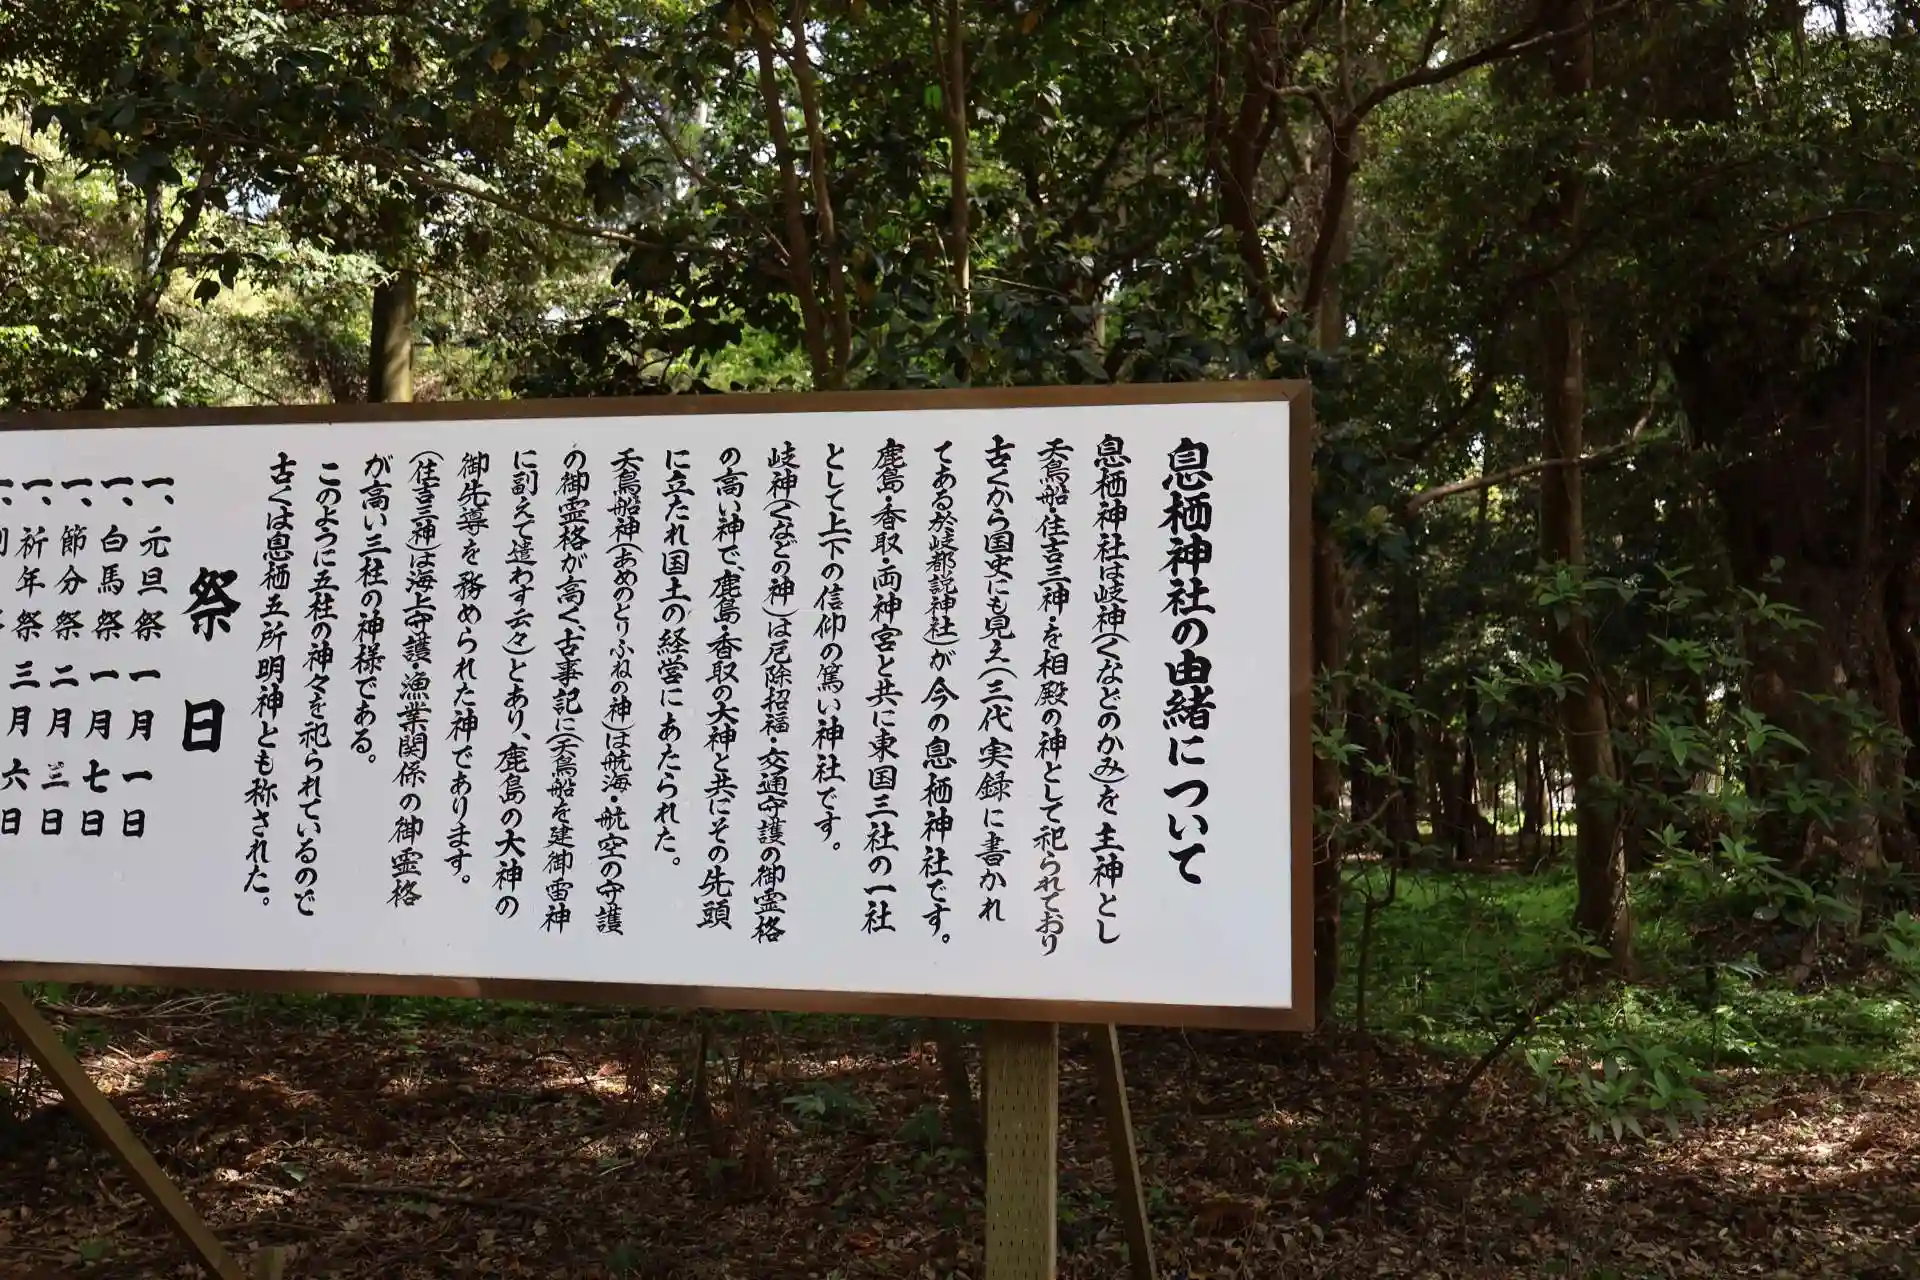 息栖神社の由緒について
息栖神社は岐神(くなどのかみ)を主神とし
天鳥船・住吉三神・を相殿の神として祀られており
古くから国史にも見え(三代実録に書かれ
てある於岐都説神社)が今の息栖神社です。
鹿島・香取・両神宮と共に東国三社の一社
として上下の信仰の篤い神社です。
岐神(くなどの神)は厄除招福・交通守護の御霊格
の高い神で、鹿島・香取の大神と共にその先頭
に立たれ国土の経営にあたられた。
天鳥船神(あめのとりふねの神)は航海・航空の守護
の御霊格が高く、古事記に(天鳥船を建御雷神
に副えて遣わす云々)とあり、鹿島の大神の
御先導を務められた神であります。
(住吉三神)は海上守護・漁業関係の御霊格
が高い三柱の神様である。
このように五柱の神々を祀られているので
古くは息栖五所明神とも称された。
祭日
一、元旦祭 一月一日
一、白馬祭 一月七日
一、節分祭 二月三日
一、祈年祭 三月六日